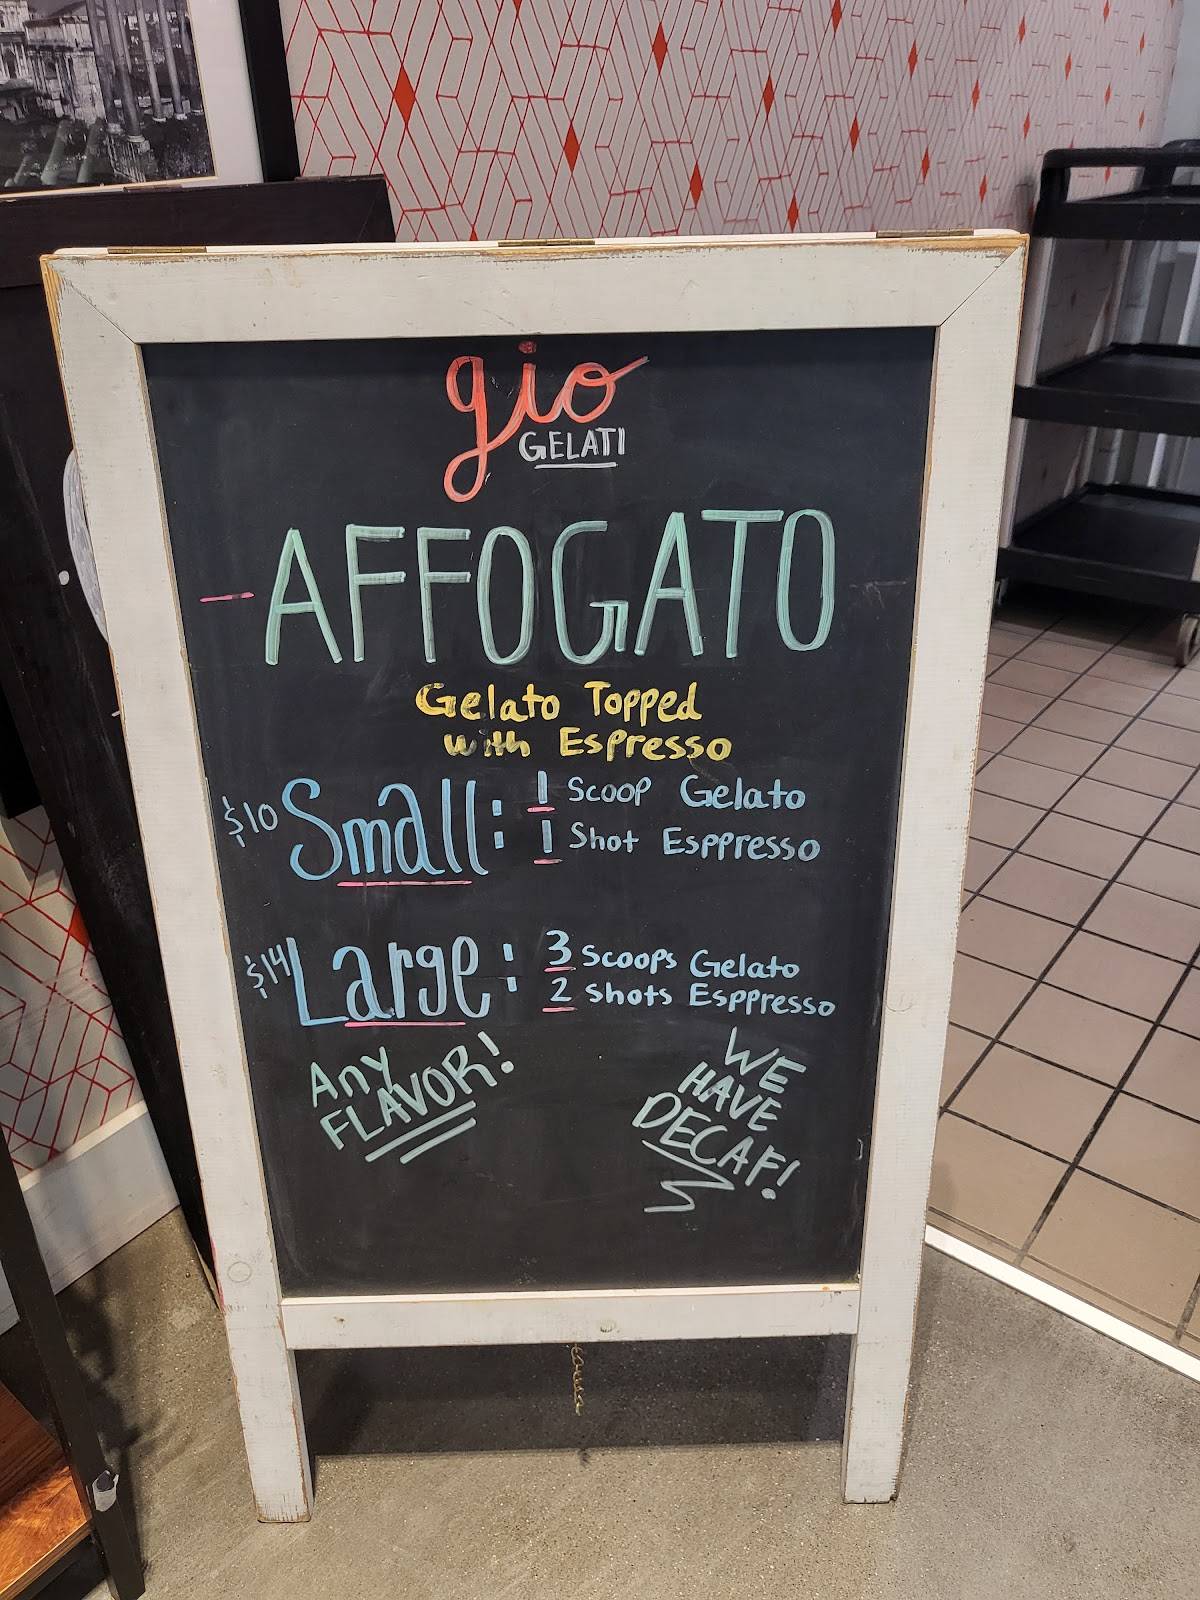 gio
GELATI
AFFOGATO
Gelato Topped
with Espresso
$10 Small: 1 Scoop Gelato
1 Shot Esppresso
$14 Large: 3 Scoops Gelato
2 Shots Esppresso
Any
FLAVOR!
WE
HAVE
DECAF!